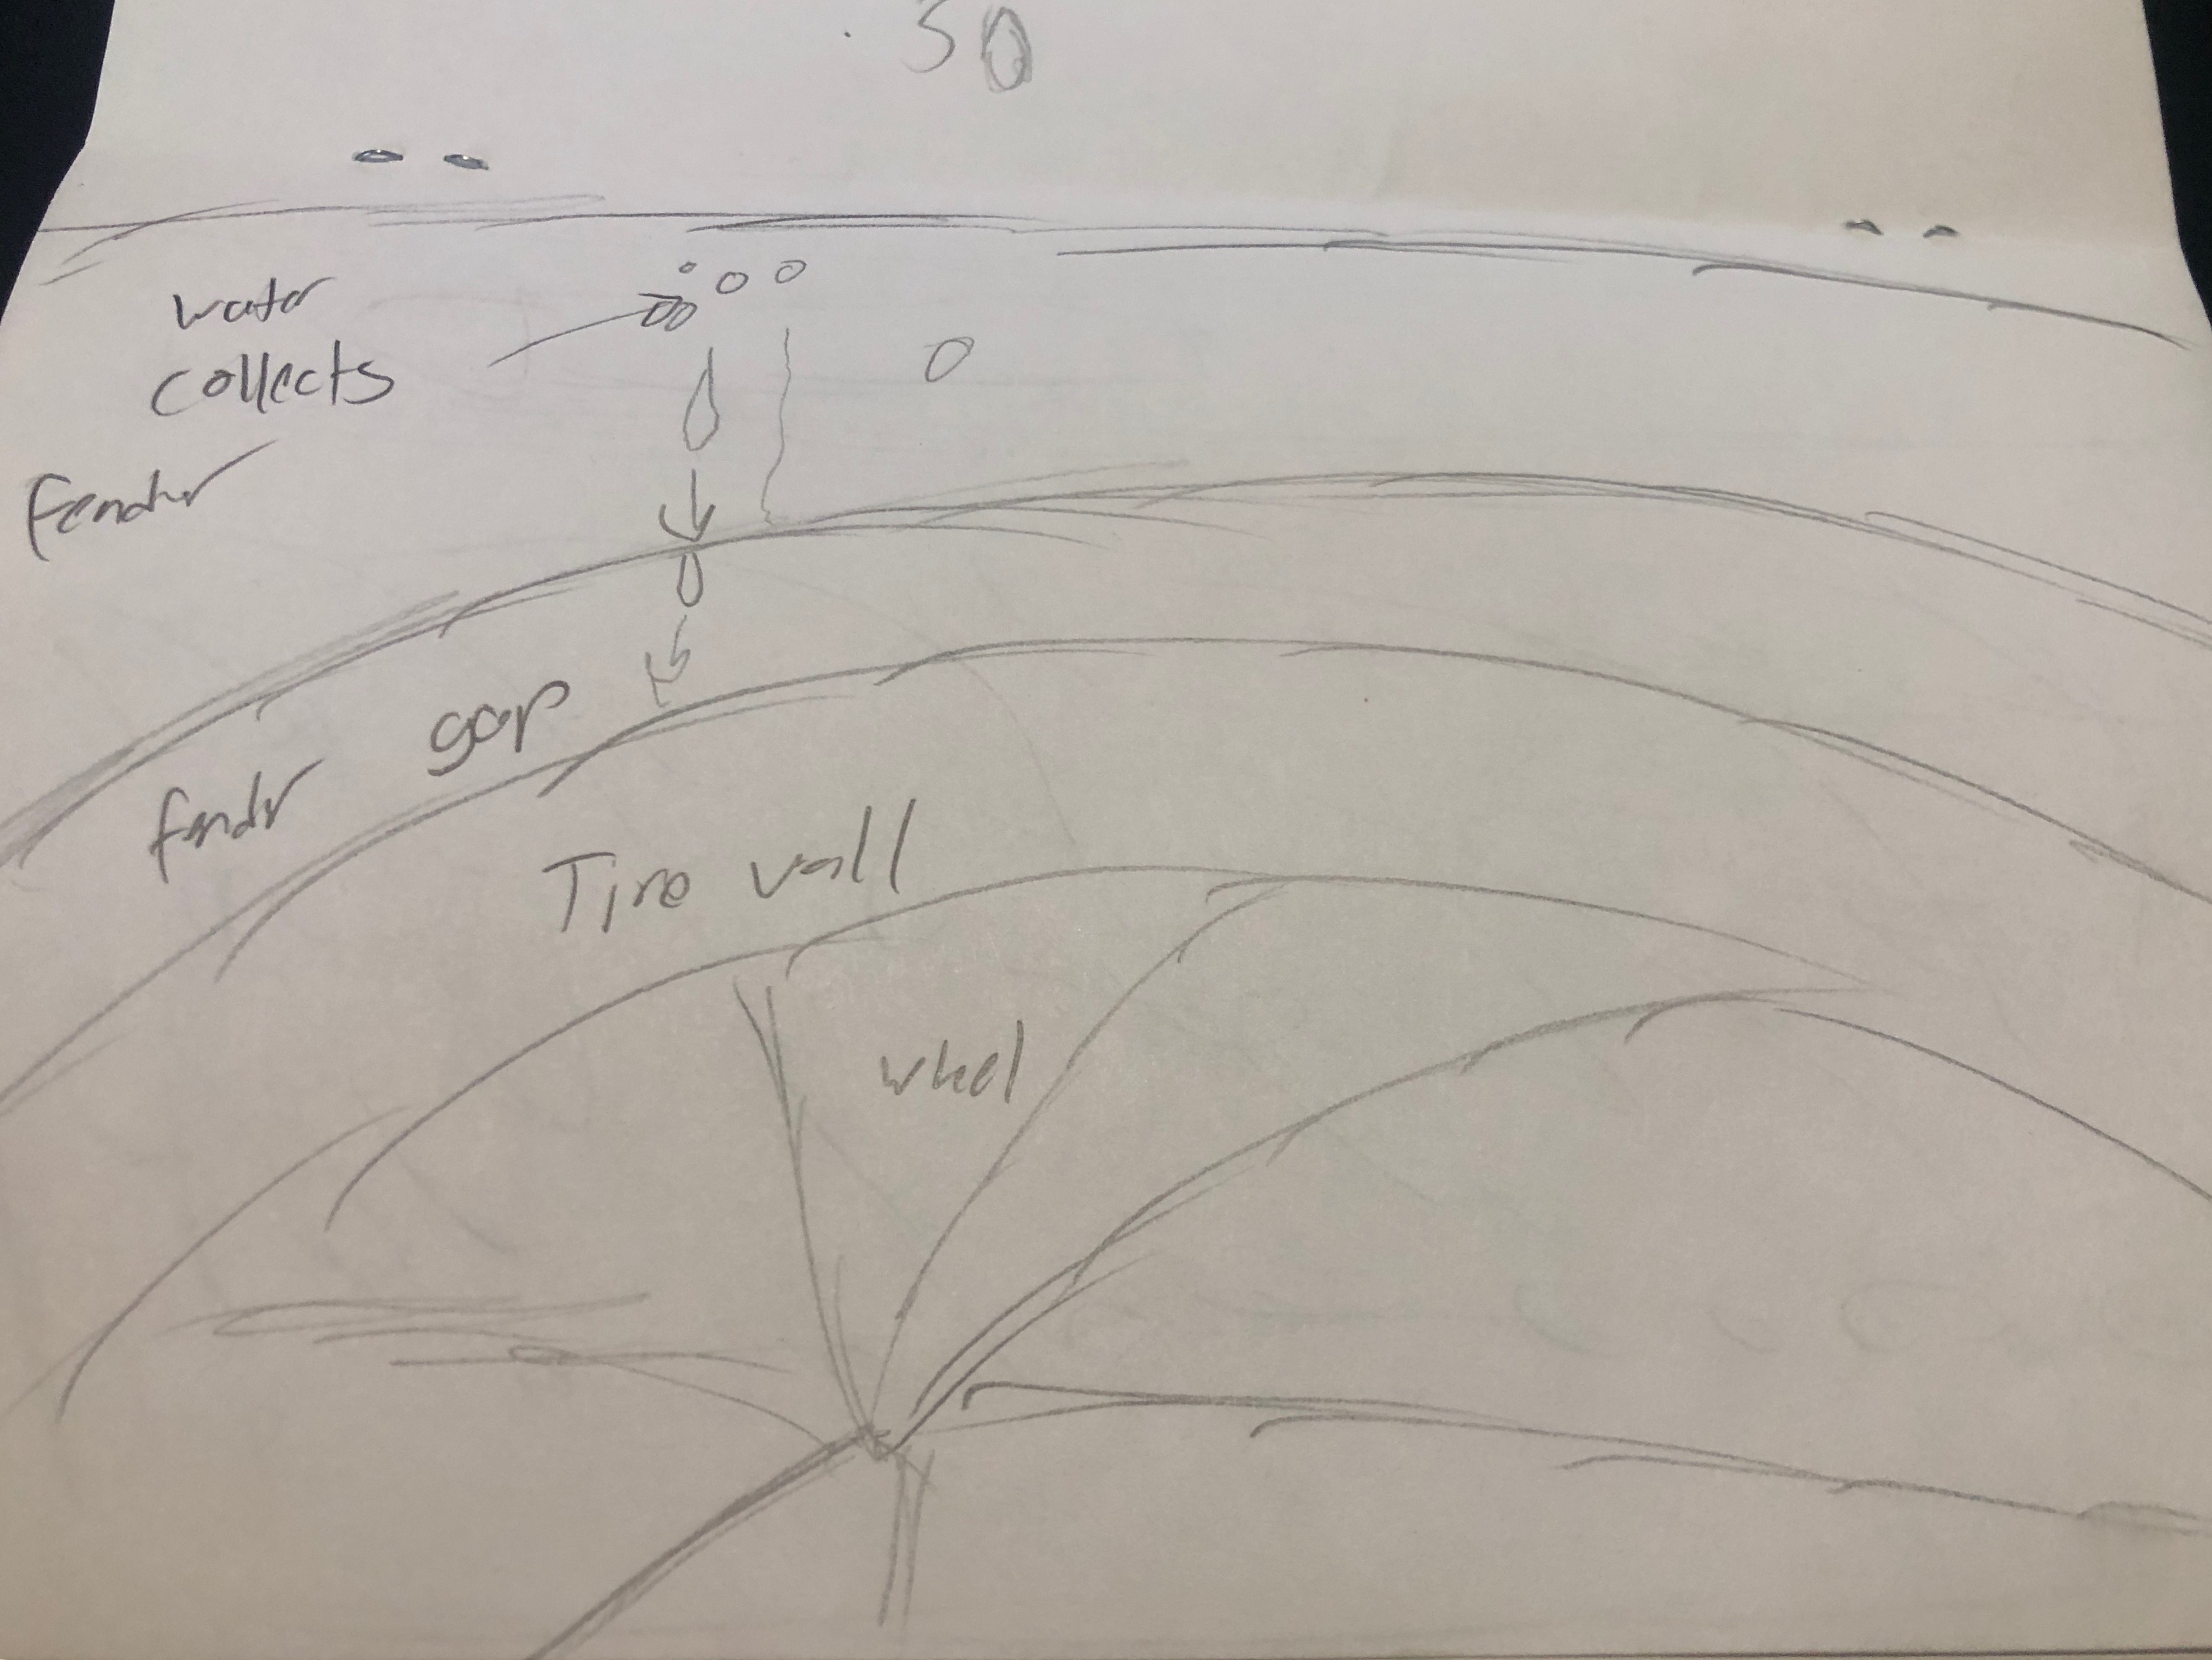 .50
water
collects
Fender
fendr gap
Tire wall
wheel